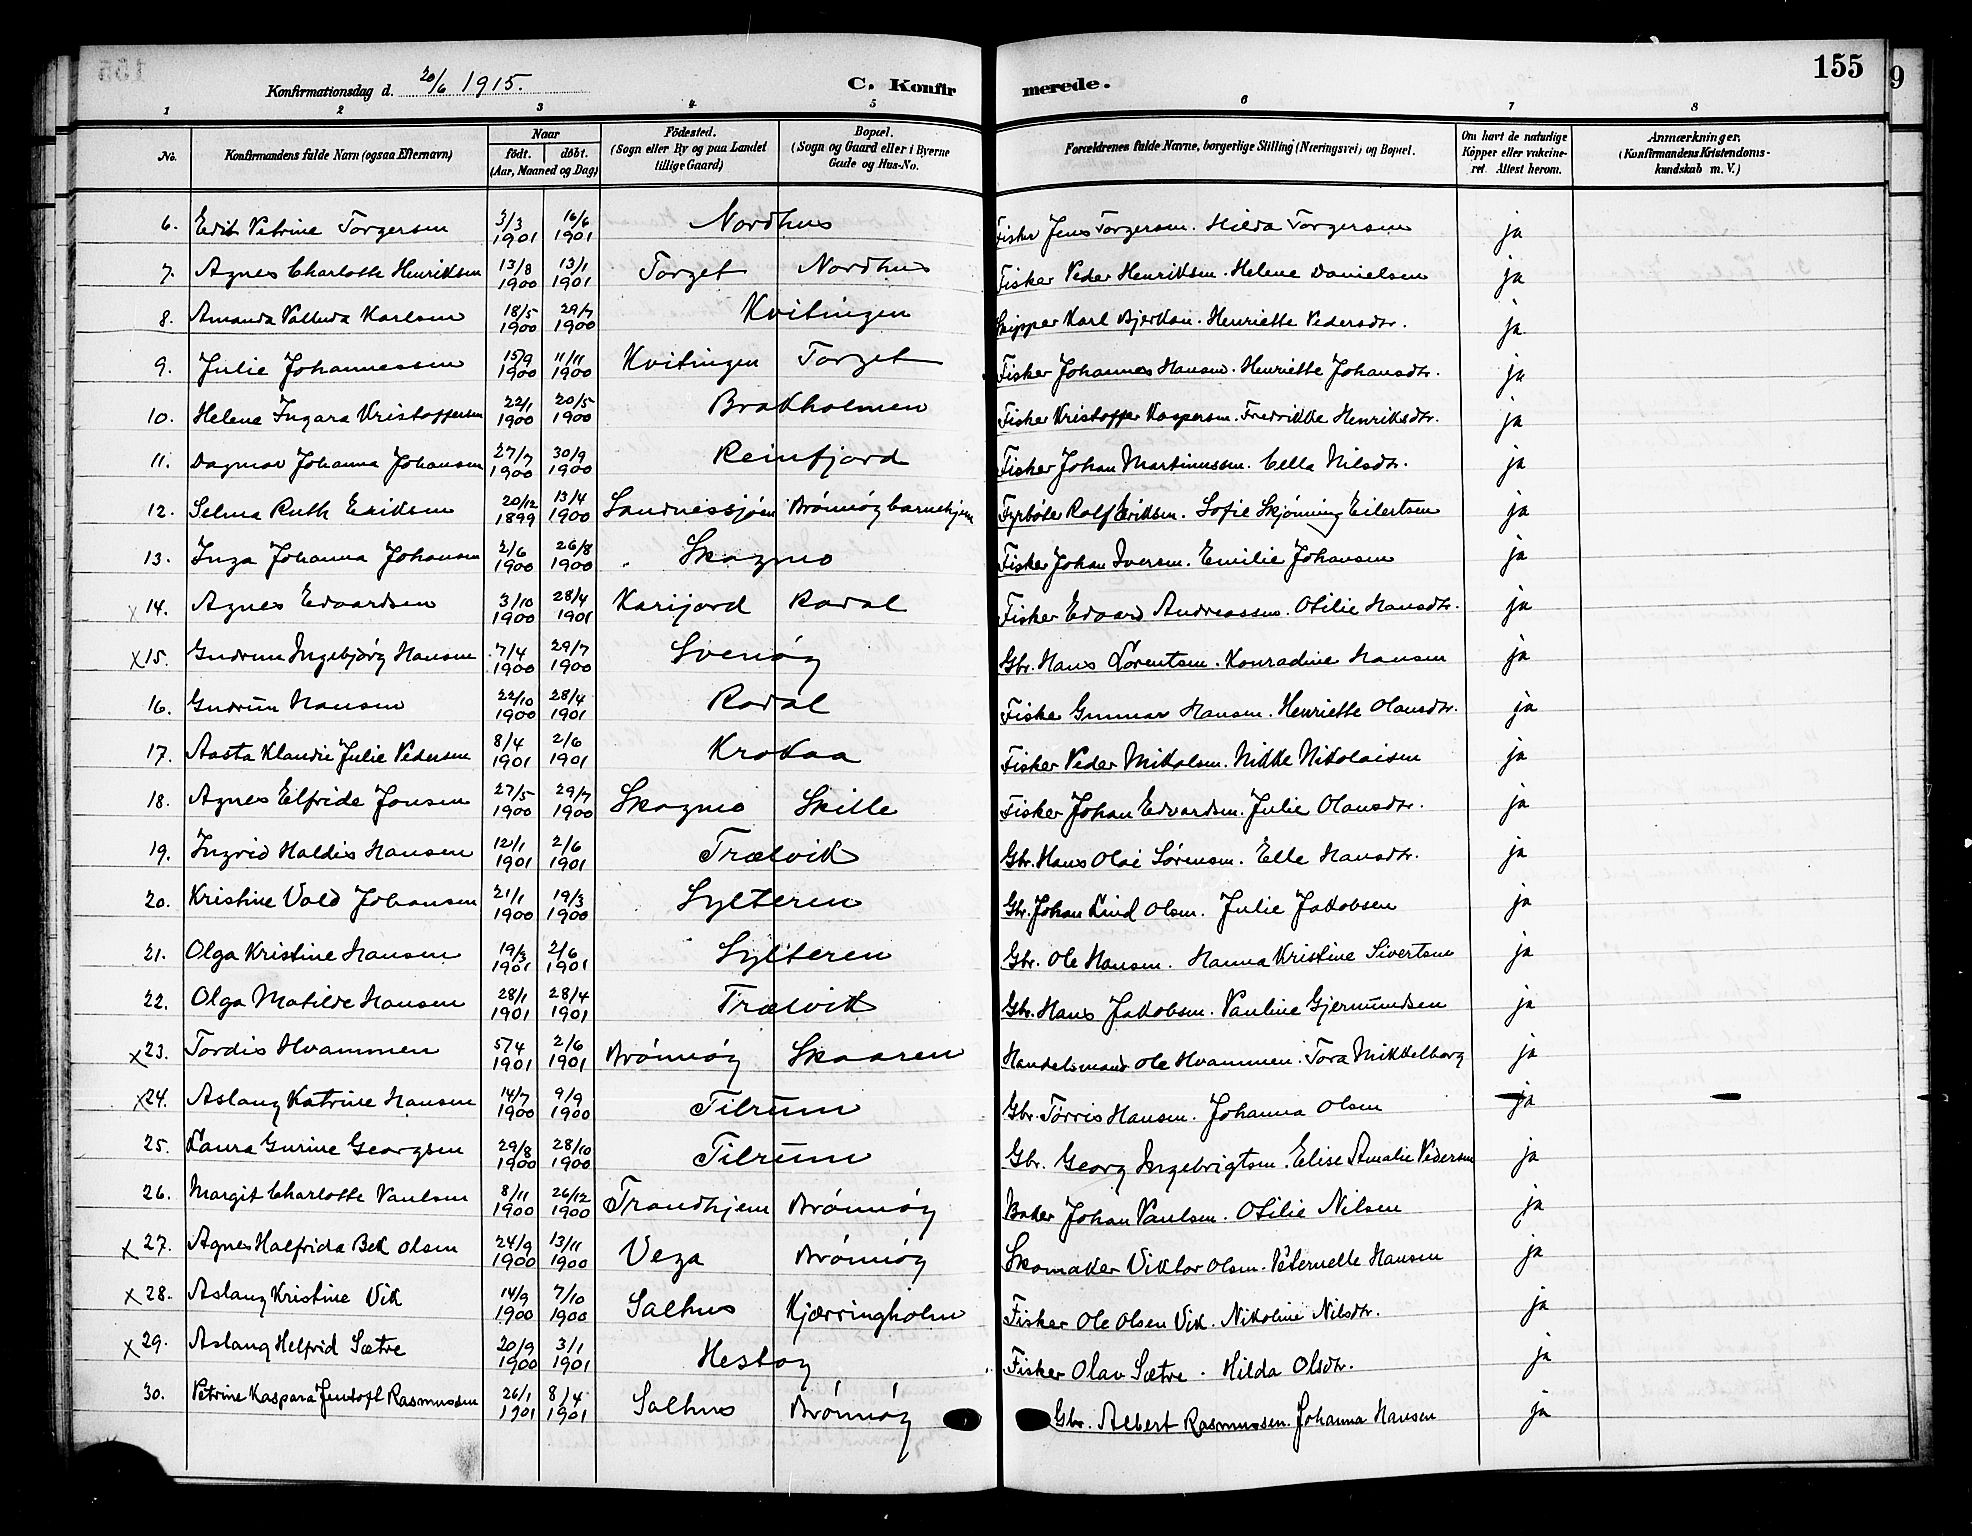 155
Konfirmationsdag d. 20/6 1915. C. Konfirmerede.
1 2 3 4 5 6 7 8
No. Konfirmandens fulde Navn (ogsaa Efternavn) Naar født. døbt. (Aar, Maaned og Dag) Födested. (Sogn eller By og paa Landet tillige Gaard) Bopæl. (Sogn og Gaard eller i Byerne Gade og Hus-No. Forældrenes fulde Navne, borgerlige Stilling (Næringsvei) og Bopæl. Om havt de natudige Köpper eller vakcineret. Attest herom. Anmærkninger. (Konfirmandens Kristendomskundskab m. V.)
6. Edit Petrine Torgersen 3/3 1901 16/6 1901 Nordhus Fisker Jens Torgersen. Hilda Torgersen ja
7. Agnes Charlotte Henriksen 13/8 1900 13/1 1901 Torget Nordhus Fisker Peder Henriksen. Helene Danielsen ja
8. Amanda Karlsen 18/5 1900 29/7 1900 Kvitingen Skipper Karl Bjerkan. Henriette Pedersdtr. ja
9. Julie Johannessen 15/9 1900 11/11 1900 Kvitingen Torget Fisker Johannes Hansen. Henriette Johansdtr. ja
10. Helene Ingara Kristoffersen 22/1 1900 20/5 1900 Brakholmen Fisker Kristoffer Kaspersen. Fredrikke Henriksdtr. ja
11. Dagmar Johanna Johansen 27/7 1900 30/9 1900 Reinfjord Fisker Johan Martinussen. Cella Nilsdtr. ja
12. Selma Ruth Eriksen 20/12 1899 13/4 1900 Sandnessjøen Brönnöy barnehjem Fyrböter Rolf Eriksen. Sofie Skjönning Eilertsen ja
13. Inga Johanna Johansen 2/6 1900 26/8 1900 Skogmo Fisker Johan Iversen. Emilie Johansen ja
x 14. Agnes Edvardsen 3/10 1900 28/4 1901 Karijord Rodal Fisker Edvard Andreassen. Otilie Hansdtr. ja
x 15. Gudrun Ingebjörg Hansen 7/4 1900 29/7 1900 Svenöy Gbr. Hans Lorentsen. Konradine Hansen ja
16. Gudrun Hansen 22/10 1900 28/4 1901 Rodal Fisker Gunnar Hansen. Henriette Olausdtr. ja
17. Aasta Klaudie Julie Pedersen 8/4 1901 2/6 1901 Krokaa Fisker Peder Mikalsen. Mikke Nikolaisen ja
18. Agnes Elfride Jonsen 27/5 1900 29/7 1900 Skogmo Skille Fisker Johan Edvardsen. Julie Olausdtr. ja
19. Ingrid Haldis Hansen 12/1 1901 2/6 1901 Trælvik Gbr. Hans Olai Sörensen. Elle Hansdtr. ja
20. Kristine Vold Johansen 21/1 1900 19/3 1900 Sylteren Gbr. Johan Lind Olsen. Julie Jakobsen ja
21. Olga Kristine Hansen 19/3 1901 2/6 1901 Sylteren Gbr. Ole Hansen. Hanna Kristine Sivertsen ja
22. Olga Matilde Hansen 28/1 1901 28/4 1901 Trælvik Gbr. Hans Jakobsen. Pauline Gjermundsen ja
x 23. Tordis Hvammen 5/4 1901 2/6 1901 Brönnöy Skaaren Handelsmand Ole Hvammen. Tora Mikkelborg ja
x 24. Aslaug Katrine Hansen 14/7 1900 9/9 1900 Tilrum Gbr. Törris Hansen. Johanna Olsen ja
25. Laura Gurine Georgsen 29/8 1900 28/10 1900 Tilrum Gbr. Georg Ingebrigtsen. Elise Amalie Pedersen ja
26. Margit Charlotte Paulsen 8/11 1900 26/12 1900 Trondhjem Brönnöy Baker Johan Paulsen. Otilie Nilsen ja
x 27. Agnes Halfrida Bek Olsen 24/9 1900 13/11 1900 Vega Brönnöy Skomaker Viktor Olsen. Peternelle Hansen ja
x 28. Aslaug Kristine Vik 14/9 1900 7/10 1900 Salhus Kjærringholm Fisker Ole Olsen Vik. Nikoline Nilsdtr. ja
x 29. Aslaug Helfrid Sætre 20/9 1900 3/1 1901 Hestöy Fisker Olav Sætre. Hilda Olsdtr. ja
30. Petrine Kaspara Jentoft Rasmussen 26/1 1901 8/4 1901 Salhus Brönnöy Gbr. Albert Rasmussen. Johanna Hansen ja